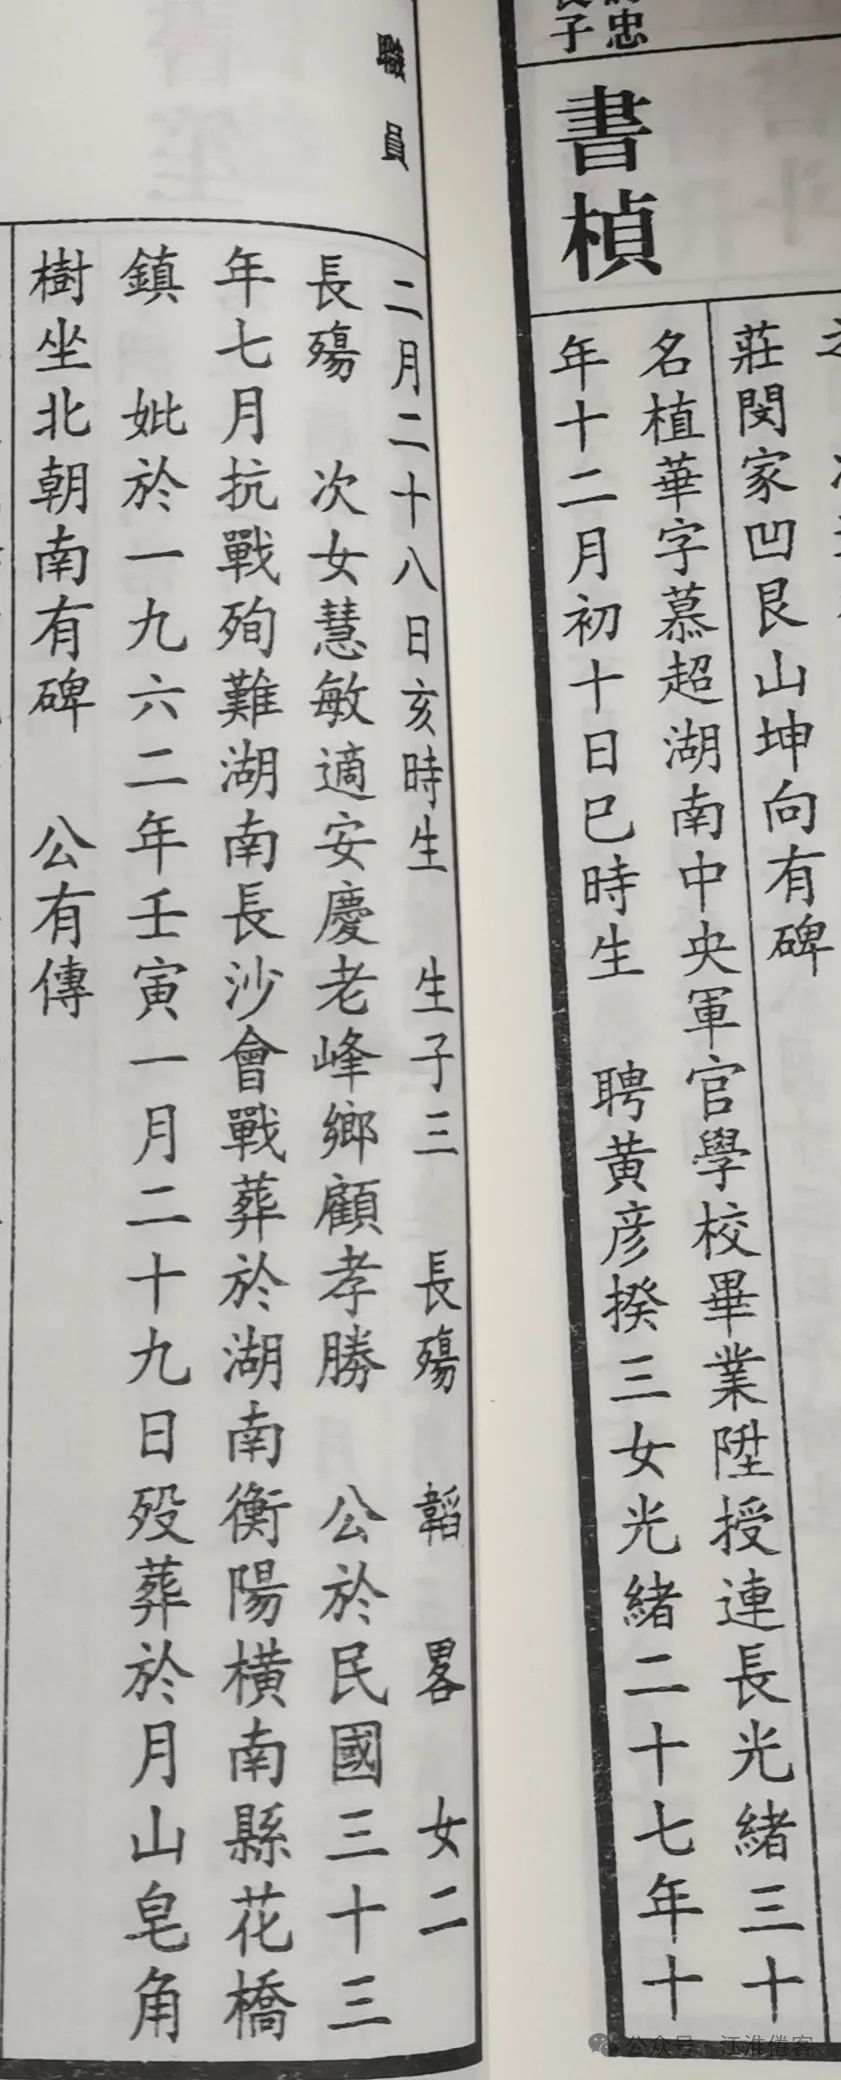 忠
子
書楨
莊閔家凹艮山坤向有碑
名植華字慕超湖南中央軍官學校畢業陞授連長光緒三十
年十二月初十日巳時生 聘黃彥揆三女光緒二十七年十
員
二月二十八日亥時生 生子三 長殤 韜 畧 女二
長殤 次女慧敏適安慶老峰鄉顧孝勝 公於民國三十三
年七月抗戰殉難湖南長沙會戰葬於湖南衡陽橫南縣花橋
鎮 妣於一九六二年壬寅一月二十九日歿葬於月山皂角
樹坐北朝南有碑 公有傳
公众号·江淮倦客